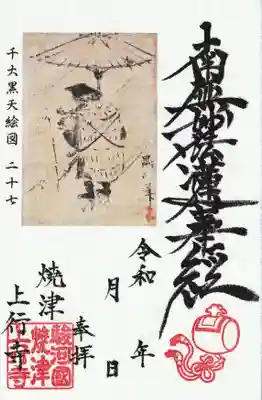 南無妙法蓮華経
千大黒天絵図 二十七
令和 年
月 日
奉拝
焼津
上行寺
駿河國
焼津